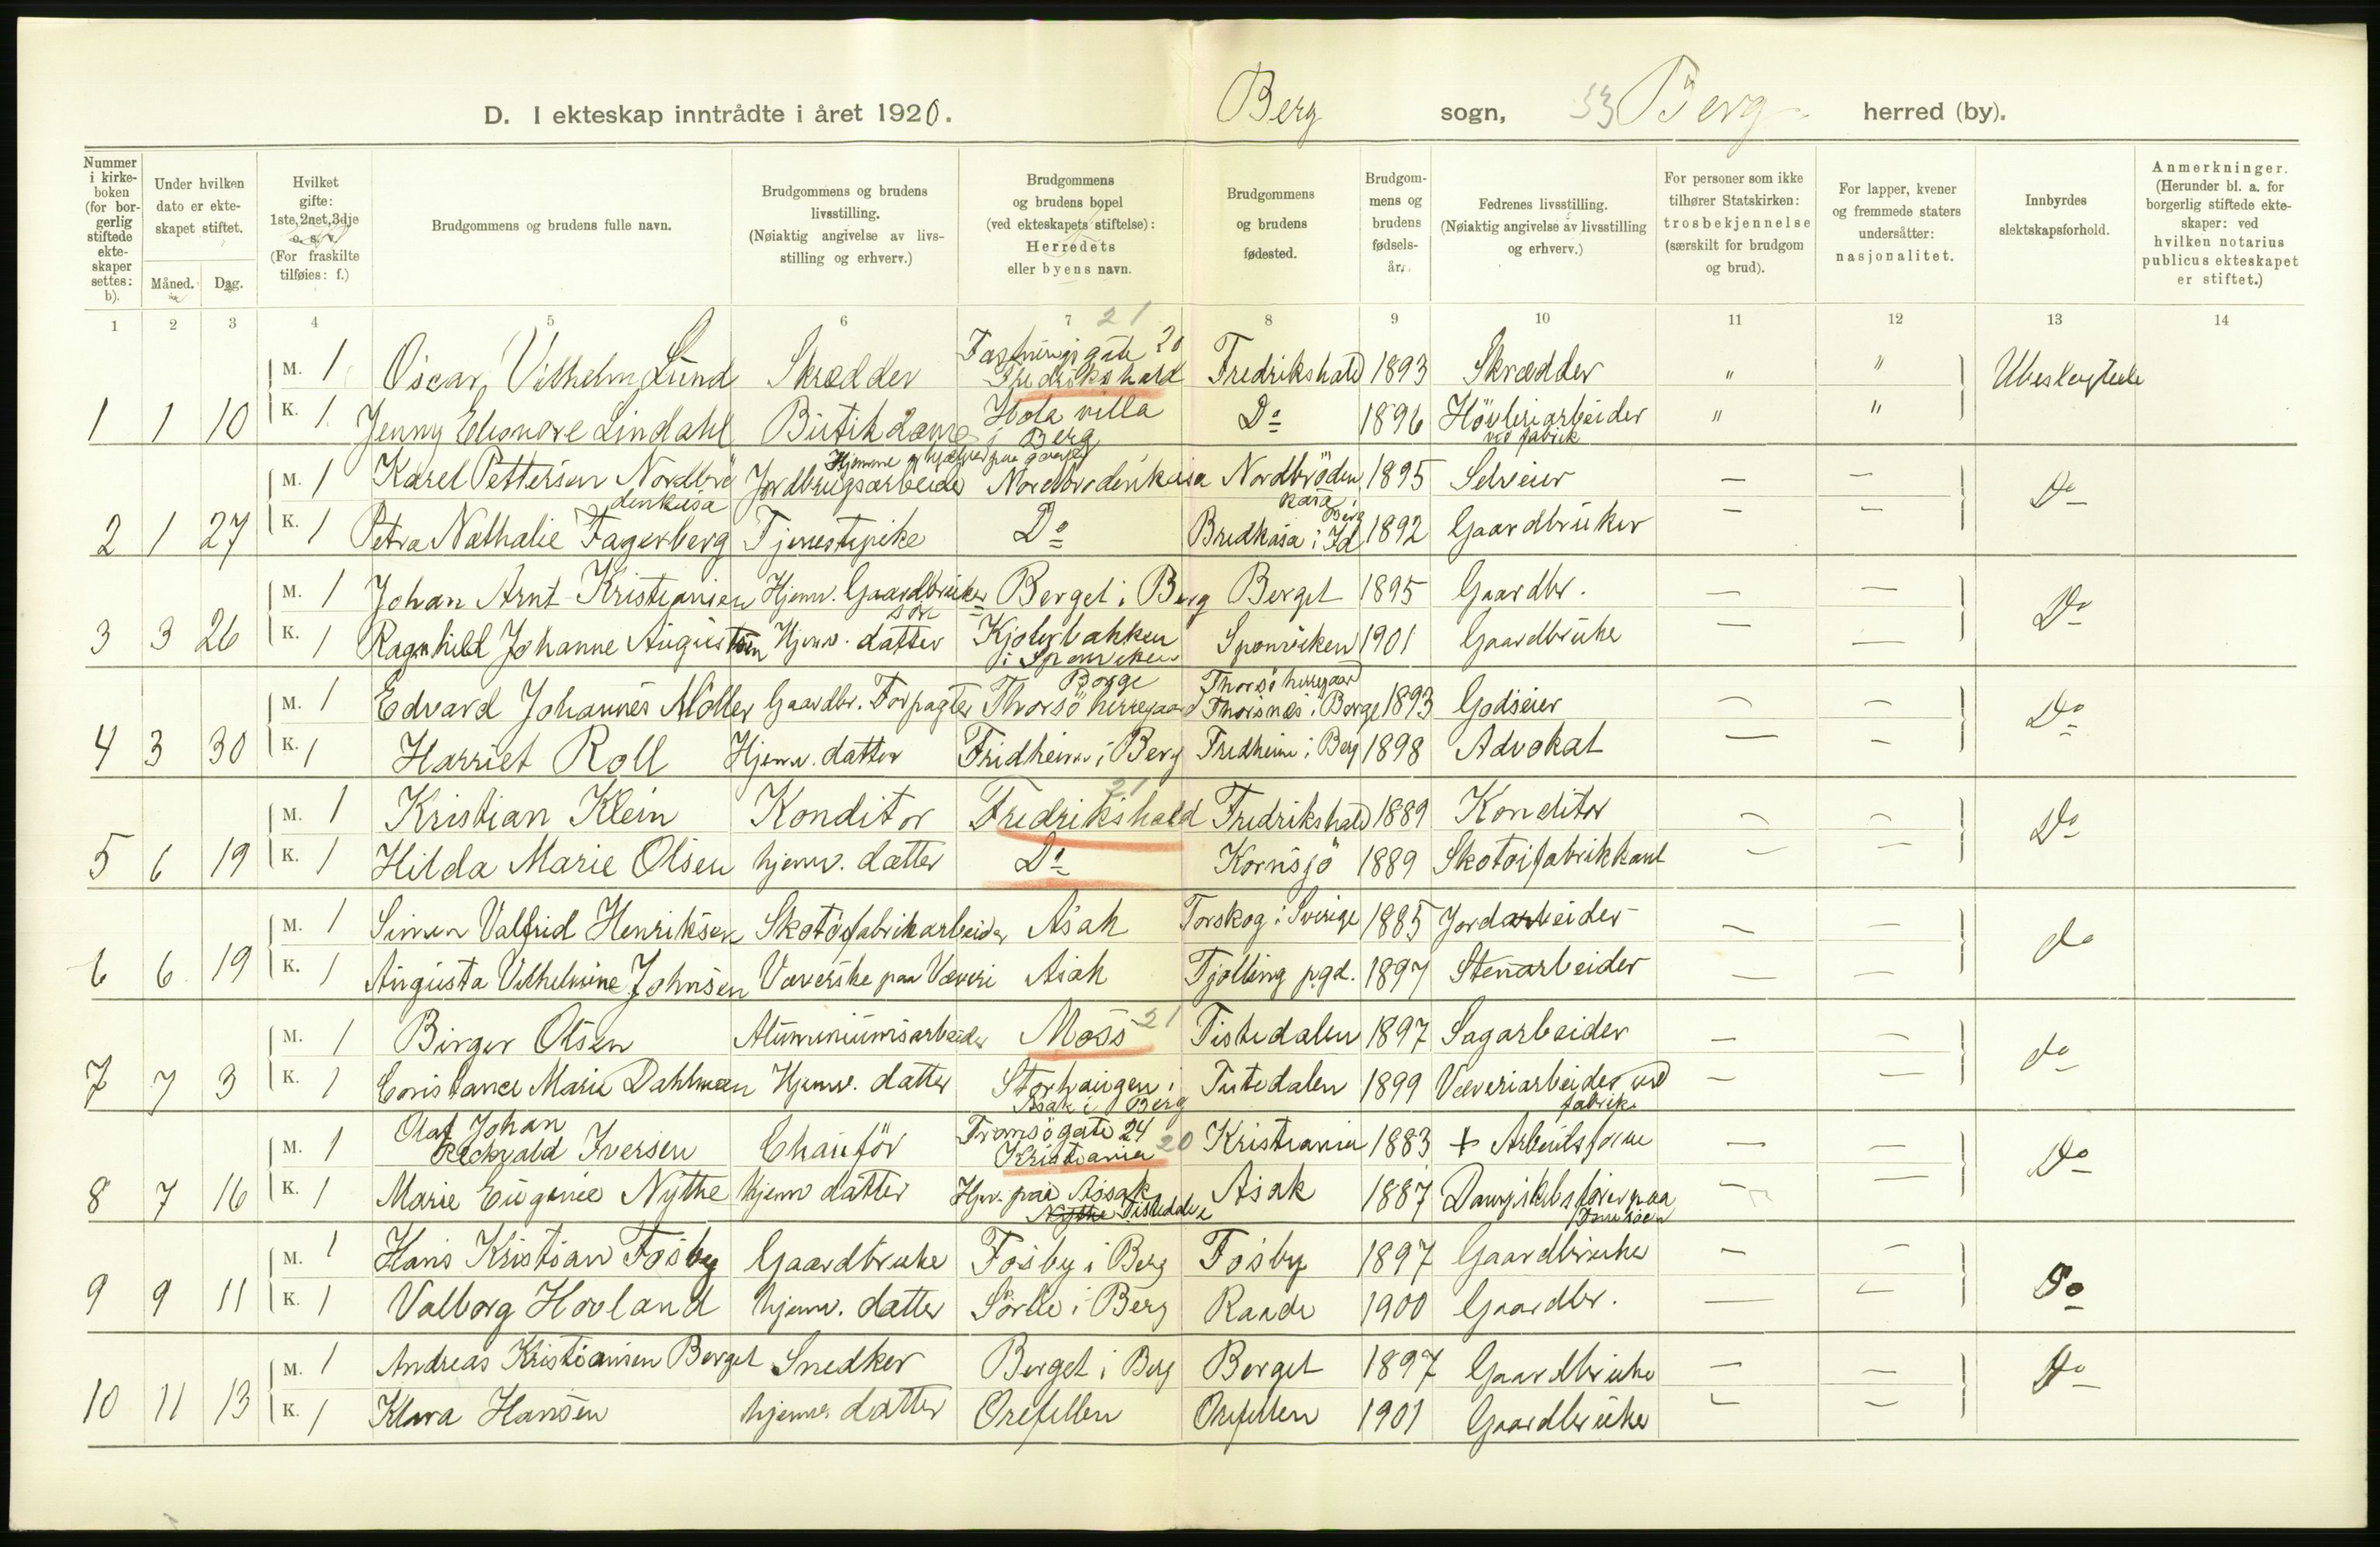 D. I ekteskap inntrådte i året 1920. Berg sogn, 33 Berg herred (by).
Nummer i kirkeboken (for borgerlig stiftede ekteskaper settes: b).
Under hvilken dato er ekteskapet stiftet.
Måned. Dag.
Hvilket gifte: 1ste, 2net, 3dje o. s. v. (For fraskilte tilføies: f.)
Brudgommens og brudens fulle navn.
Brudgommens og brudens livsstilling. (Nøiaktig angivelse av livsstilling og erhverv.)
Brudgommens og brudens bopel (ved ekteskapets stiftelse): Herredets eller byens navn.
Brudgommens og brudens fødested.
Brudgommens og brudens fødselsår.
Fedrenes livsstilling. (Nøiaktig angivelse av livsstilling og erhverv.)
For personer som ikke tilhører Statskirken: trosbekjennelse (særskilt for brudgom og brud).
For lapper, kvener og fremmede staters undersåtter: nasjonalitet.
Innbyrdes slektskapsforhold.
Anmerkninger. (Herunder bl. a. for borgerlig stiftede ekteskaper: ved hvilken notarius publicus ekteskapet er stiftet.)
1 2 3 4 5 6 7 8 9 10 11 12 13 14
21
Fæstningsgate 20
M. 1 Oscar Vilhelm Lund Skrædder Fredrikshald Fredrikshald 1893 Skrædder " " Ubeslegtede
1 1 10 K. 1 Jenny Eleonore Lindahl Butikdame Hola villa i Berg Do 1896 Høvleriarbeider ved fabrik " "
Hjemme hjælper paa gaarden
M. 1 Karel Pettersen Nordbrødenkasa Jordbrugsarbeide Nordbrödenkasa Nordbrödenkasa i Berg 1895 Selveier — — Do
2 1 27 K. 1 Petra Nathalie Fagerberg Tjenestepike Do Bredkasa i Id 1892 Gaardbruker — —
M. 1 Johan Arnt Kristiansen Hjemv. Gaardbruker sön Berget i Berg Berget 1895 Gaardbr. — — Do
3 3 26 K. 1 Ragnhild Johanne Augustsen Hjemv. datter Kjølerbakken i Sponviken Sponviken 1901 Gaardbruke — —
M. 1 Edvard Johannes Möller Gaardbr. Forpagter Thorsö herregaard Borge Thorsö herregaard Thorsnes i Borge 1893 Godseier — — Do
4 3 30 K. 1 Harriet Roll Hjemv. datter Fridheim i Berg Fredheim i Berg 1898 Advokat — —
21
M. 1 Kristian Klein Konditor Fredrikshald Fredrikshald 1889 Konditor — — Do
5 6 19 K. 1 Hilda Marie Olsen hjemv. datter Do Kornsjö 1889 Skotöifabrikkant — —
M. 1 Simen Valfrid Henriksen Skotöifabrikarbeider Asak Torskog i Sverige 1885 Jordarbeider — — do
6 6 19 K. 1 Augusta Vilhelmine Johnsen Væverske paa Væveri Asak Tjølling pgd. 1897 Stenarbeider — —
M. 1 Birger Olsen Aluminiumsarbeider Moss 21 Tistedalen 1897 Sagarbeider — — do
7 7 3 K. 1 Constance Marie Dahlman Hjemv. datter Storhaugen i Asak i Berg Tistedalen 1899 Væveriarbeider ved fabrik — —
M. 1 Olaf Johan Reckvald Iversen Chauför Tromsögate 24 Kristiania 20 Kristiania 1883 + Arbeidsform — — Do
8 7 16 K. 1 Marie Eugenie Nythe hjemv datter Hjv. paa Assak Nythe Tistedale Asak 1887 Dampskibsförer paa — —
M. 1 Hans Kristian Fosby Gaardbruke Fosby i Berg Fosby 1897 Gaardbruker — — Do
9 9 11 K. 1 Valborg Hovland hjemv. datter Sörlie i Berg Raade 1900 Gaardbr. — —
M. 1 Andreas Kristiansen Berget Snedker Berget i Berg Berget 1897 Gaardbruke — — Do
10 11 13 K. 1 Klara Hansen hjemv datter Orefellen Orefellen 1901 Gaardbruker — —